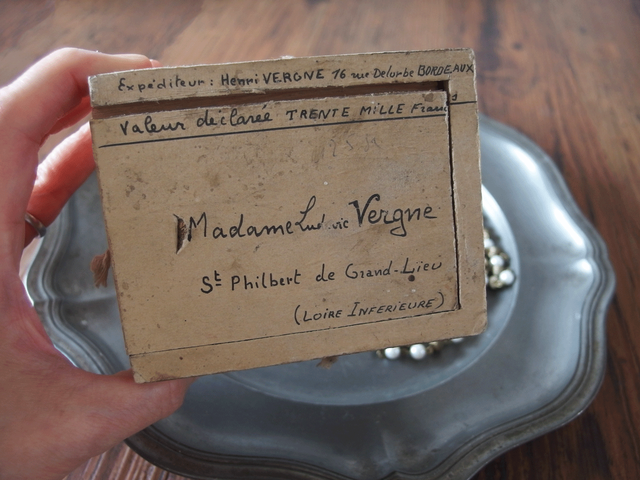 Expéditeur : Henri VERGNE 16 rue Delurbe BORDEAUX
Valeur déclarée TRENTE MILLE Francs
Madame Ludovic Vergne
St Philbert de Grand-Lieu
(LOIRE INFERIEURE)